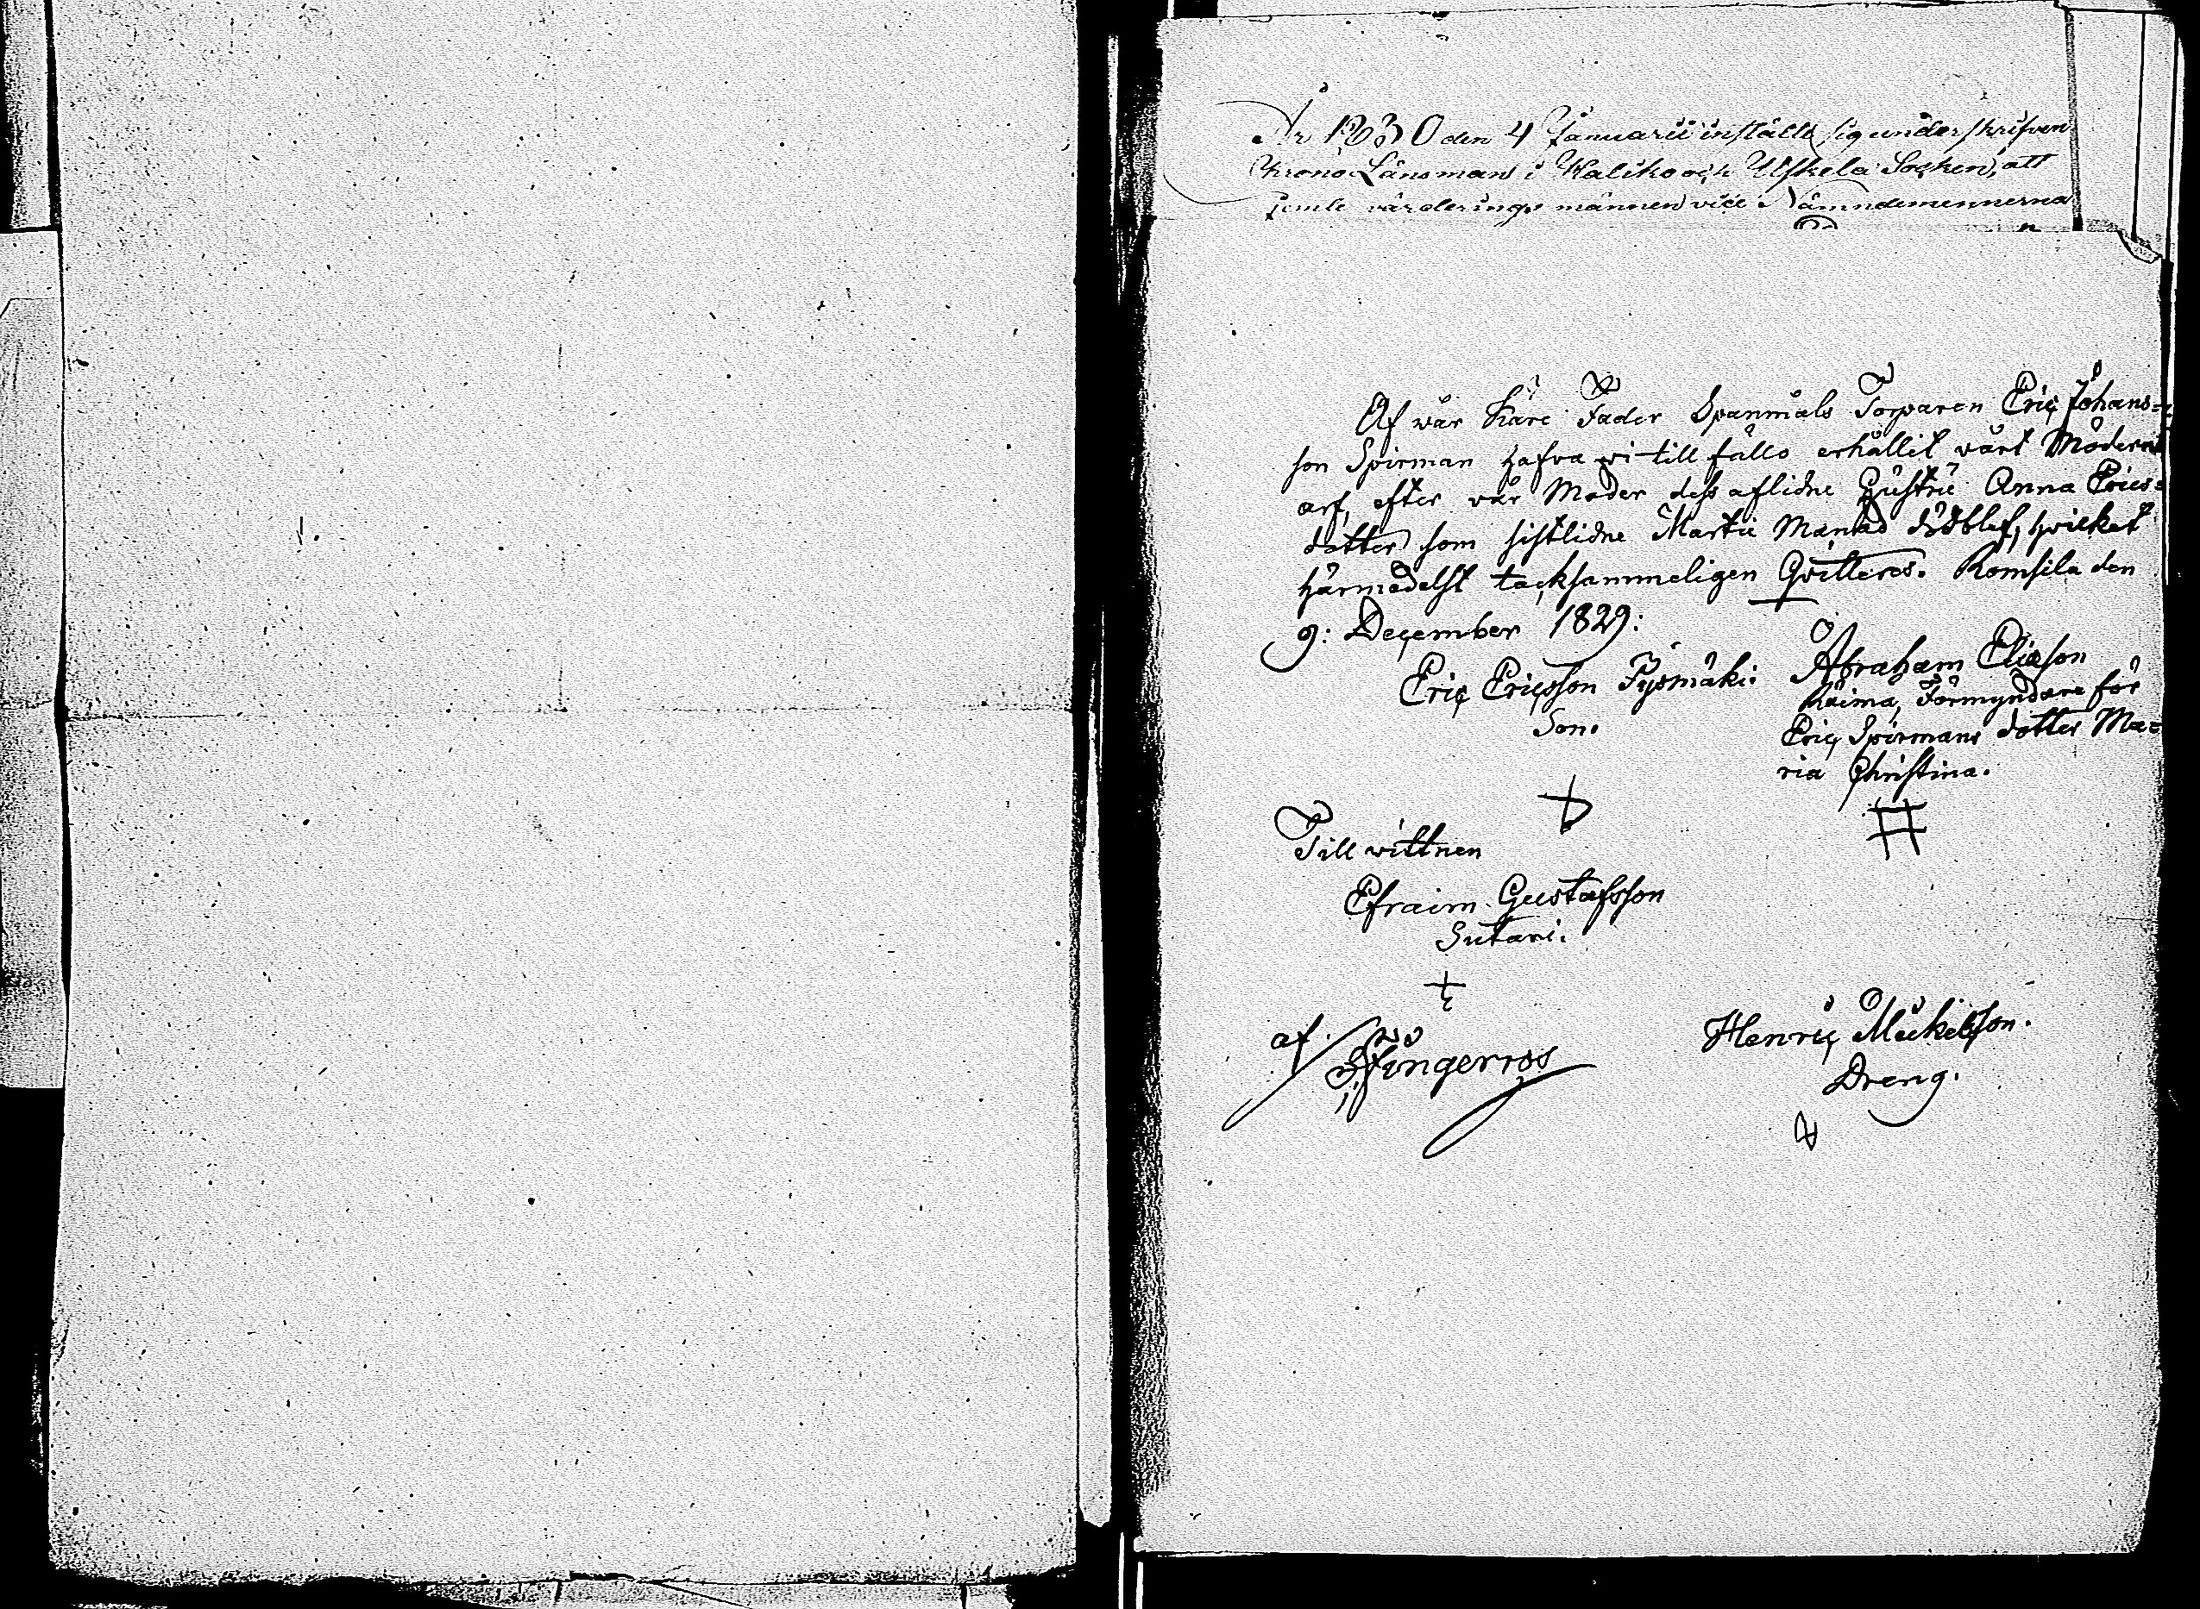 År 1830 den 4 Januarii inställt sig underskrifven
Krono Länsman i Kaliko och Ulskela Socken, att
jemte värderings männen vice Nämndemennerna
Af wår Käre Fader Spanmåls Torparen Eric Johans=
son Spirman hafva wi till fullo erhållit vårt Möderne
arf, efter vår Moder dess aflidne Hustru Anna Erics=
dotter som sistlidne Martii Månad dödblef, hvilket
härmedelst tacksammeligen Qvitteres. Romsila den
9: December 1829:
Eric Ericsson Tysmäki.
Son.
Abraham Eliason
Räima, Förmyndare för
Eric Spirmans dotter Ma=
ria Christina.
Till wittnen
Efraim Gustafsson
Sutari.
af
Henric Mickelsson.
Dreng.